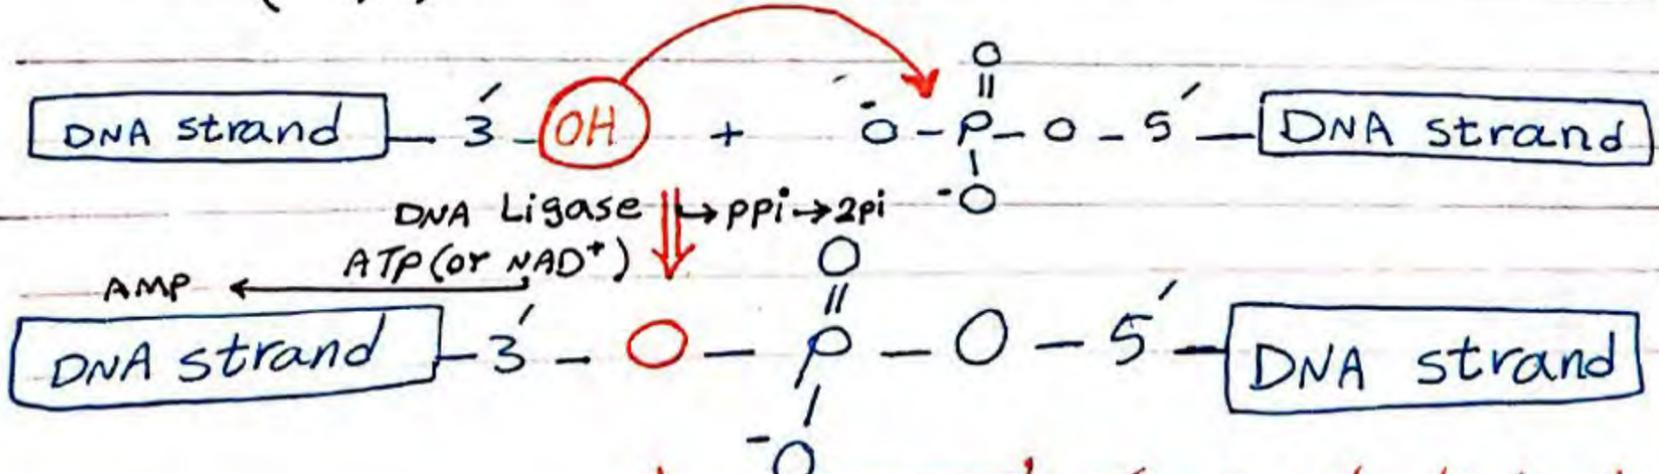 O
DNA strand — 3' - OH + ⁻O - P - O - 5' — DNA strand
⁻O
DNA Ligase → ppi → 2pi
ATP (or NAD⁺)
AMP ←
O
DNA strand - 3' - O - P - O - 5' - DNA strand
⁻O